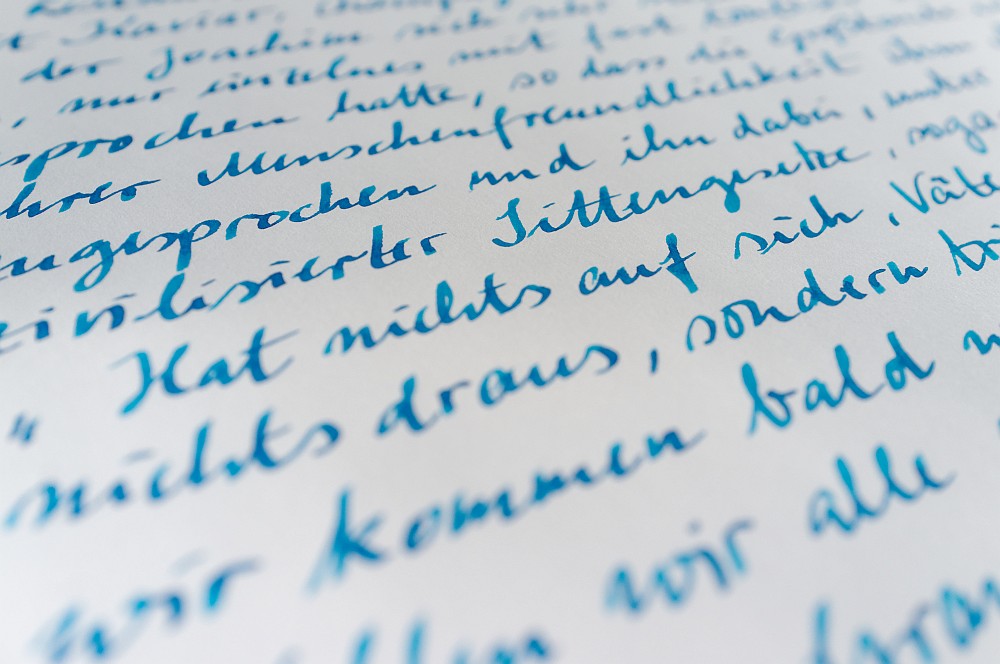 der Joachim sich sehr
, nur einzelnes mit fast
sprochen hatte, so dass die
ihrer Menschenfreundlichkeit ihm
zugesprochen und ihn dabei, unter
zivilisierter Sittengesetze, soga
„Hat nichts auf sich, Väte
nichts draus, sondern tri
wir kommen bald
wir alle